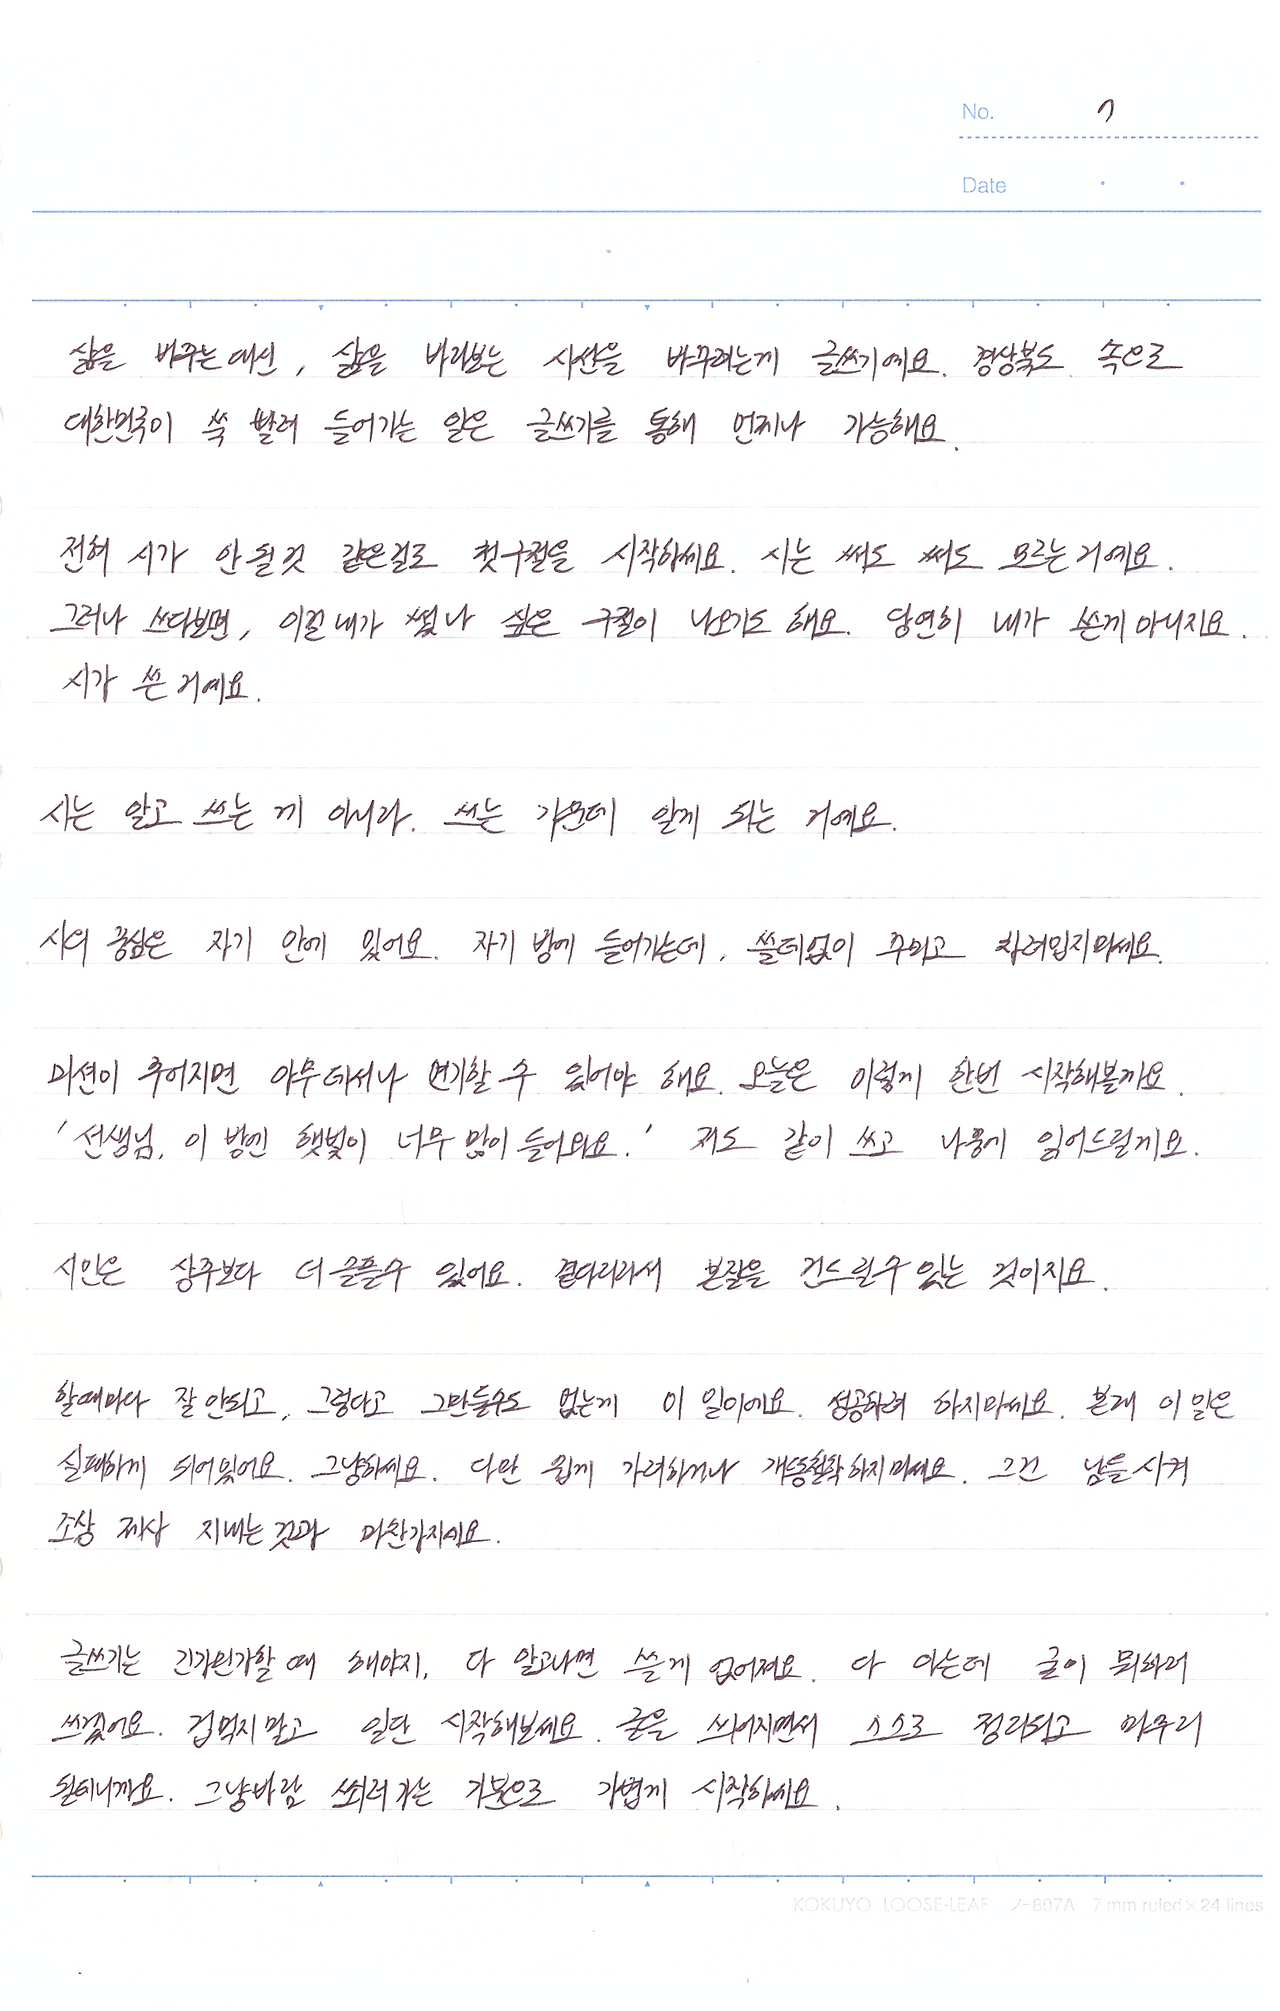 No. 7
Date
삶을 바꾸는 대신, 삶을 바라보는 시선을 바꾸려는게 글쓰기예요. 경상북도 속으로
대한민국이 쑥 빨려 들어가는 일은 글쓰기를 통해 언제나 가능해요.
전혀 시가 안 될 것 같은걸로 첫구절을 시작하세요. 시는 써도 써도 모르는 거예요.
그러나 쓰다보면, 이걸 내가 썼나 싶은 구절이 나오기도 해요. 당연히 내가 쓴게 아니지요.
시가 쓴 거예요.
시는 알고 쓰는 게 아니라. 쓰는 가운데 알게 되는 거예요.
시의 중심은 자기 안에 있어요. 자기 방에 들어가는데, 쓸데없이 꾸미고 차려입지마세요.
미션이 주어지면 아무데서나 연기할 수 있어야 해요. 오늘은 이렇게 한번 시작해볼까요.
'선생님, 이 방엔 햇빛이 너무 많이 들어와요.' 저도 같이 쓰고 나중에 읽어드릴게요.
시인은 상주보다 더 슬플수 있어요. 곁다리라서 본질을 건드릴수 있는 것이지요.
할때마다 잘 안되고, 그렇다고 그만둘수도 없는게 이 일이에요. 성공하려 하지마세요. 본래 이 일은
실패하게 되어있어요. 그냥하세요. 다만 쉽게 가려하거나 개똥철학하지마세요. 그건 남을 시켜
조상 제사 지내는 것과 마찬가지예요.
글쓰기는 긴가민가할 때 해야지, 다 알고나면 쓸게 없어져요. 다 아는데 글이 뭐하러
쓰겠어요. 겁먹지말고 일단 시작해보세요. 글은 씌어지면서 스스로 정리되고 마무리
될테니까요. 그냥바람 쐬러 가는 기분으로 가볍게 시작하세요.
KOKUYO LOOSE-LEAF ノ-807A 7 mm ruled×24 lines